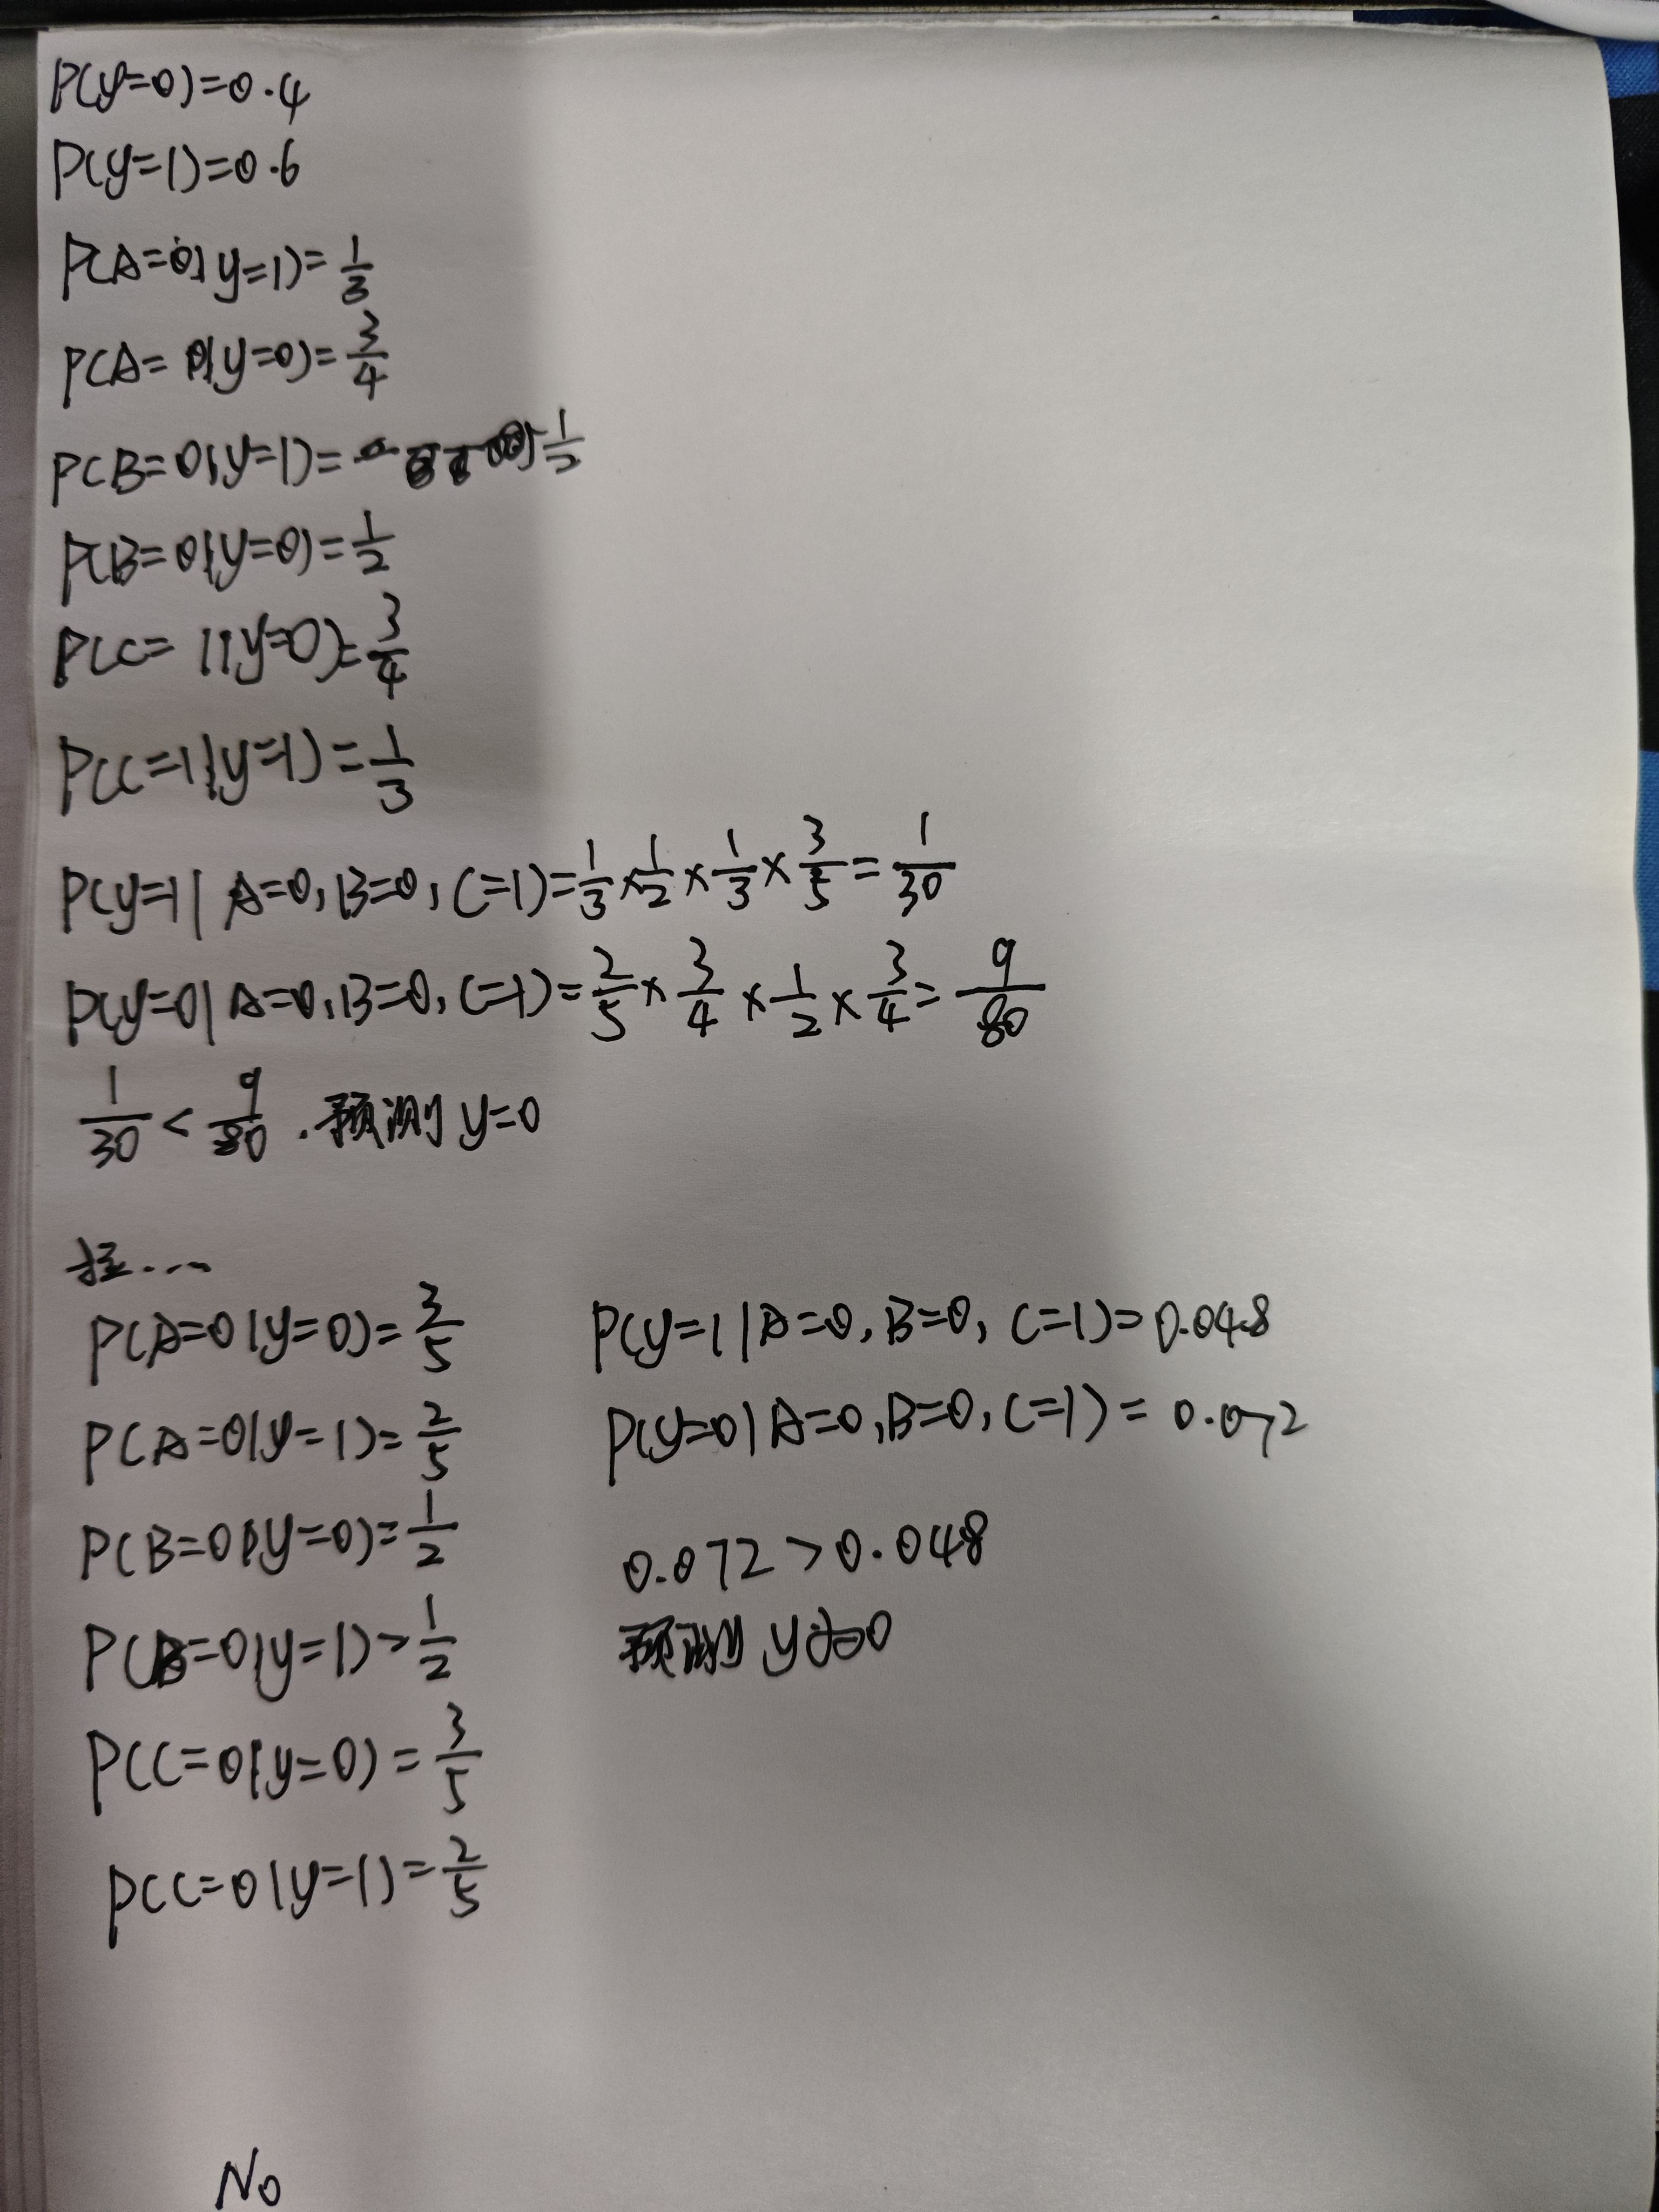 P(y=0)=0.4
P(y=1)=0.6
P(A=0|y=1)=1/3
P(A=0|y=0)=3/4
P(B=0|y=1)=1/2
P(B=0|y=0)=1/2
P(C=1|y=0)=3/4
P(C=1|y=1)=1/3
P(y=1|A=0,B=0,C=1)=1/3×1/2×1/3×3/5=1/30
P(y=0|A=0,B=0,C=1)=2/5×3/4×1/2×3/4=9/80
1/30<9/80.预测y=0
P(A=0|y=0)=3/5
P(A=0|y=1)=2/5
P(B=0|y=0)=1/2
P(B=0|y=1)=1/2
P(C=0|y=0)=3/5
P(C=0|y=1)=2/5
P(y=1|A=0,B=0,C=1)=0.048
P(y=0|A=0,B=0,C=1)=0.072
0.072>0.048
预测y=0
No